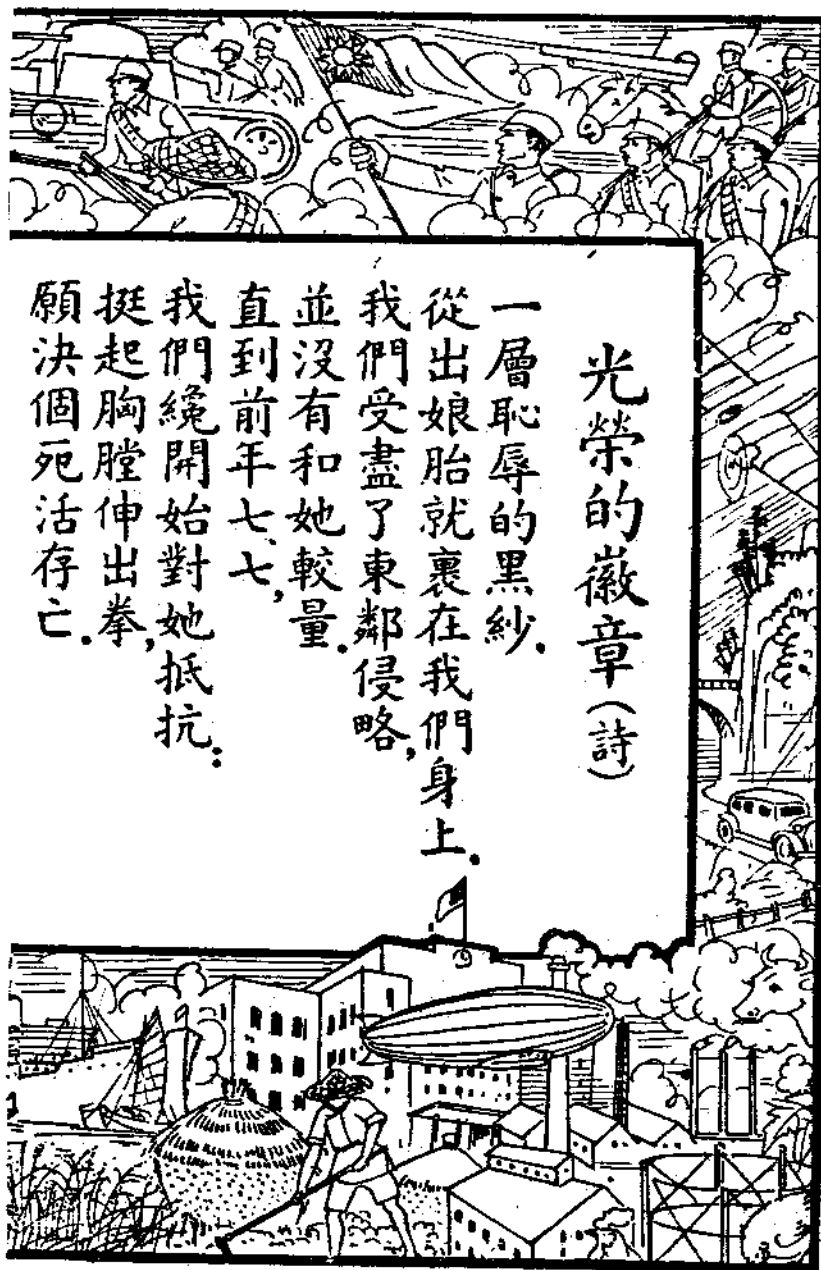 光榮的徽章（詩）
一層恥辱的黑紗．
從出娘胎就裹在我們身上．
我們受盡了東鄰侵略，
並沒有和她較量．
直到前年七、七，
我們纔開始對她抵抗：
挺起胸膛伸出拳，
願決個死活存亡．